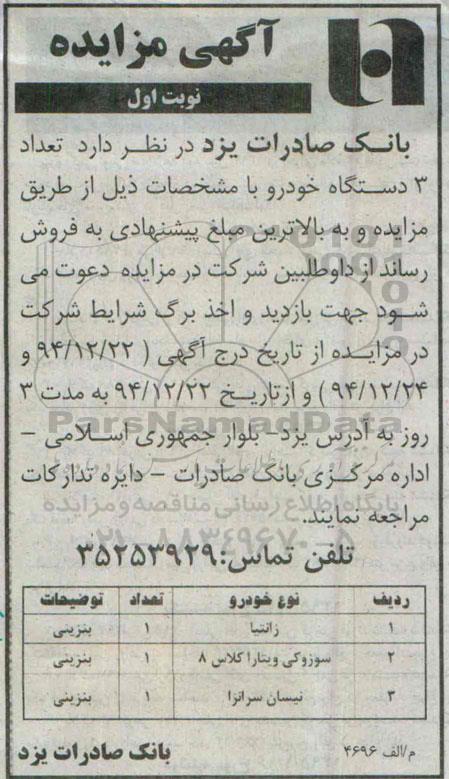 آگهی مزایده
نوبت اول
بانک صادرات یزد در نظر دارد تعداد
۳ دستگاه خودرو با مشخصات ذیل از طریق
مزایده و به بالاترین مبلغ پیشنهادی به فروش
رساند از داوطلبین شرکت در مزایده دعوت می
شود جهت بازدید و اخذ برگ شرایط شرکت
در مزایده از تاریخ درج آگهی ( ۹۴/۱۲/۲۲ و
۹۴/۱۲/۲۴ ) و از تاریخ ۹۴/۱۲/۲۲ به مدت ۳
روز به آدرس یزد - بلوار جمهوری اسلامی -
اداره مرکزی بانک صادرات - دایره تدارکات
مراجعه نمایند.
تلفن تماس: ۳۵۲۵۳۹۲۹
ردیف نوع خودرو تعداد توضیحات
۱ زانتیا ۱ بنزینی
۲ سوزوکی ویتارا کلاس ۸ ۱ بنزینی
۳ نیسان سرانزا ۱ بنزینی
م/الف ۴۶۹۶ بانک صادرات یزد
ParsNamadData
پایگاه اطلاع رسانی مناقصه و مزایده
۰۲۱-۸۸۳۴۹۶۷۰-۵